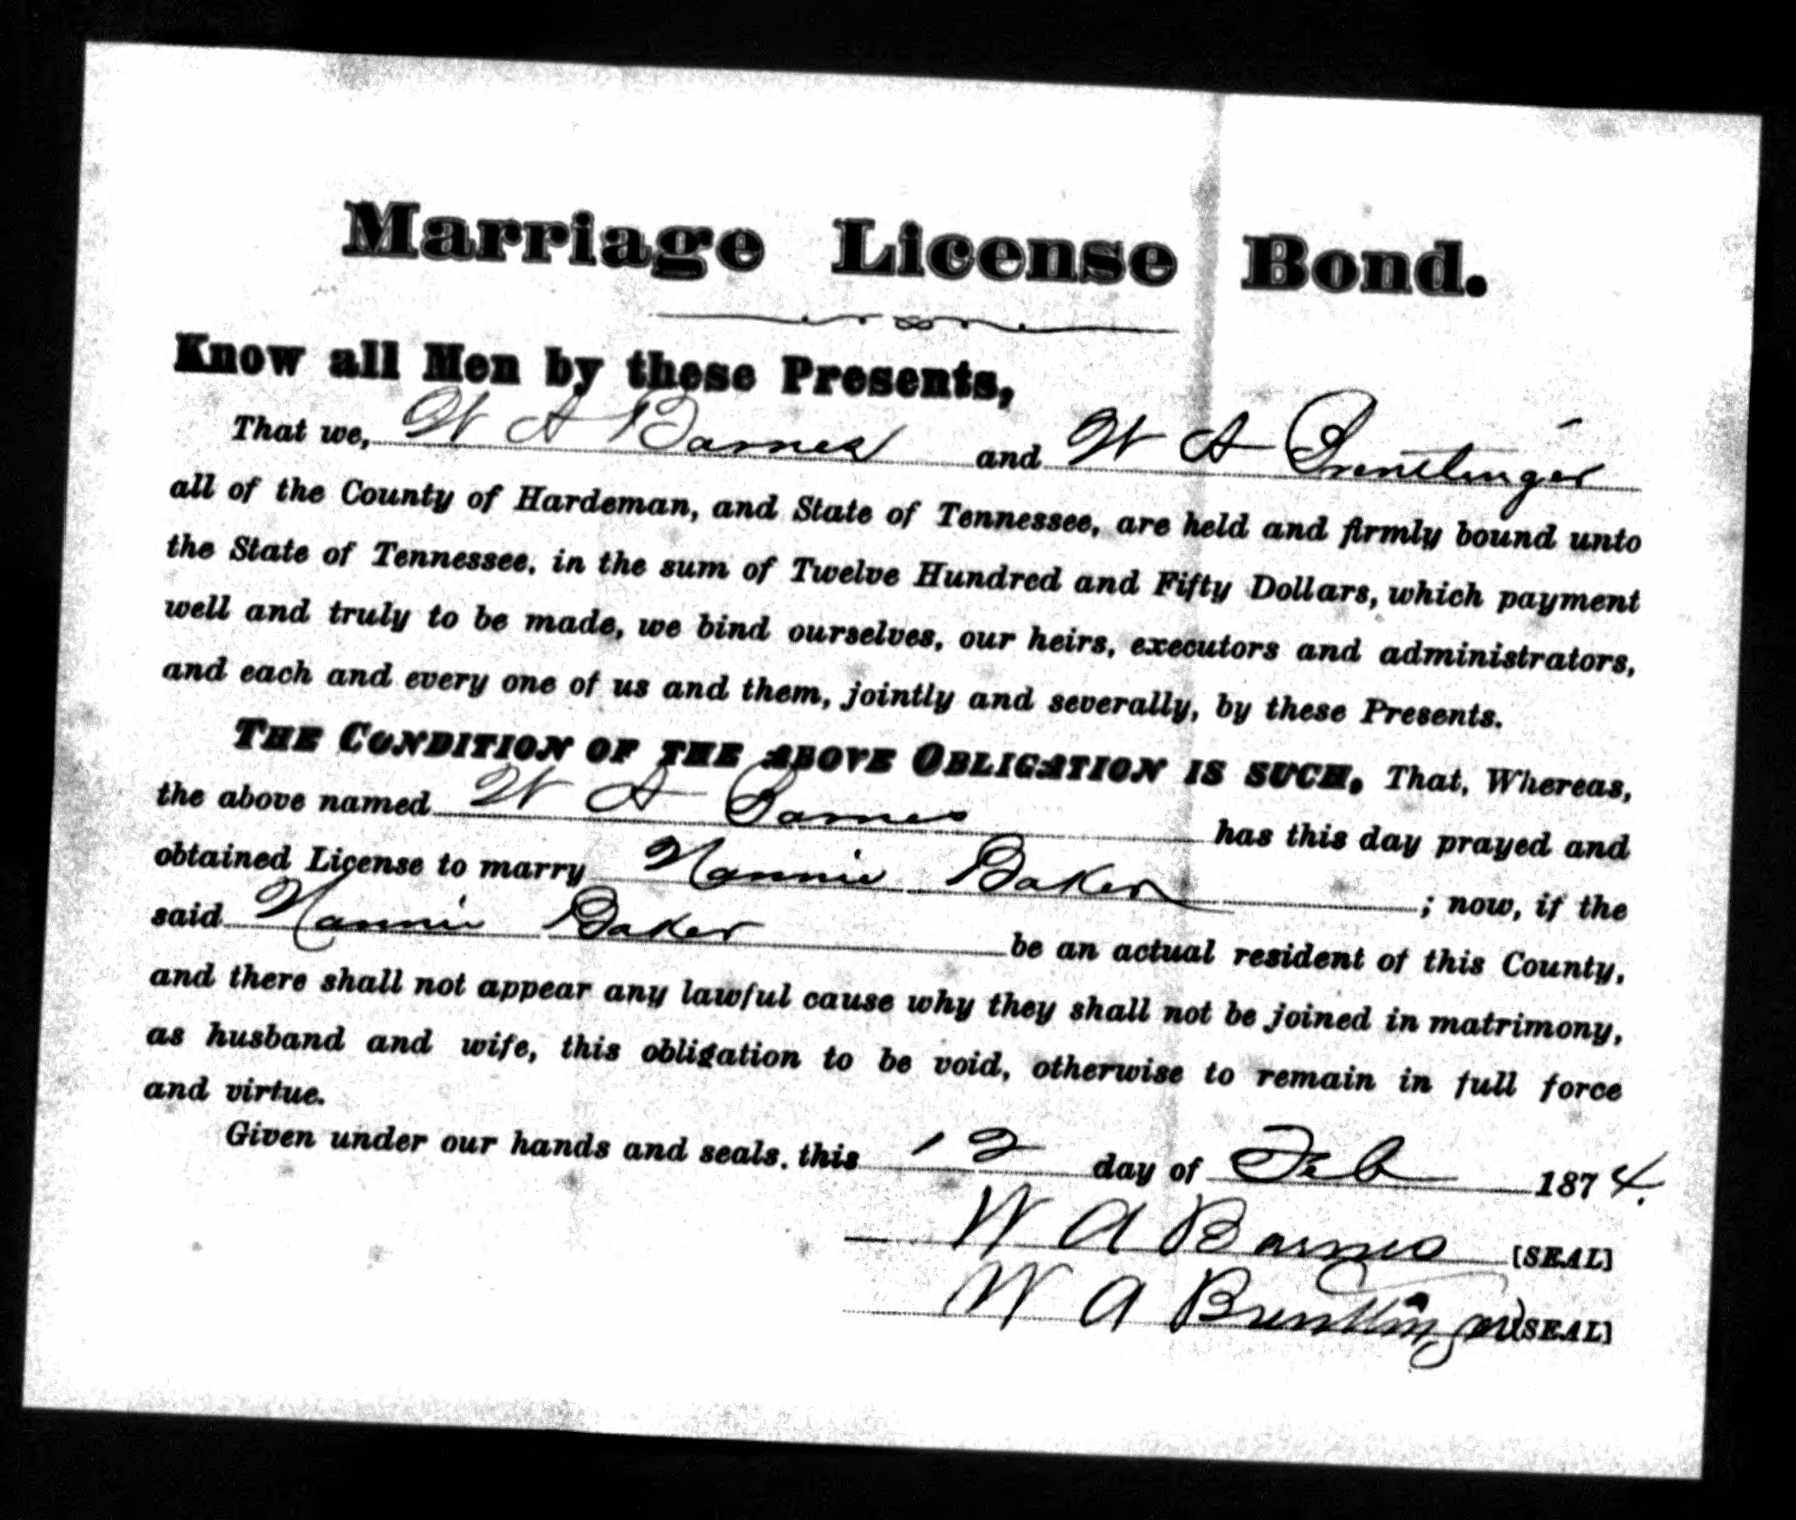 Marriage License Bond.
Know all Men by these Presents,
That we, W A Barnes and W A Brentlinger
all of the County of Hardeman, and State of Tennessee, are held and firmly bound unto
the State of Tennessee, in the sum of Twelve Hundred and Fifty Dollars, which payment
well and truly to be made, we bind ourselves, our heirs, executors and administrators,
and each and every one of us and them, jointly and severally, by these Presents.
THE CONDITION OF THE ABOVE OBLIGATION IS SUCH, That, Whereas,
the above named W A Barnes has this day prayed and
obtained License to marry Nannie Baker ; now, if the
said Nannie Baker be an actual resident of this County,
and there shall not appear any lawful cause why they shall not be joined in matrimony,
as husband and wife, this obligation to be void, otherwise to remain in full force
and virtue.
Given under our hands and seals, this 12 day of Feb 1874.
W A Barnes [SEAL]
W A Brentlinger [SEAL]